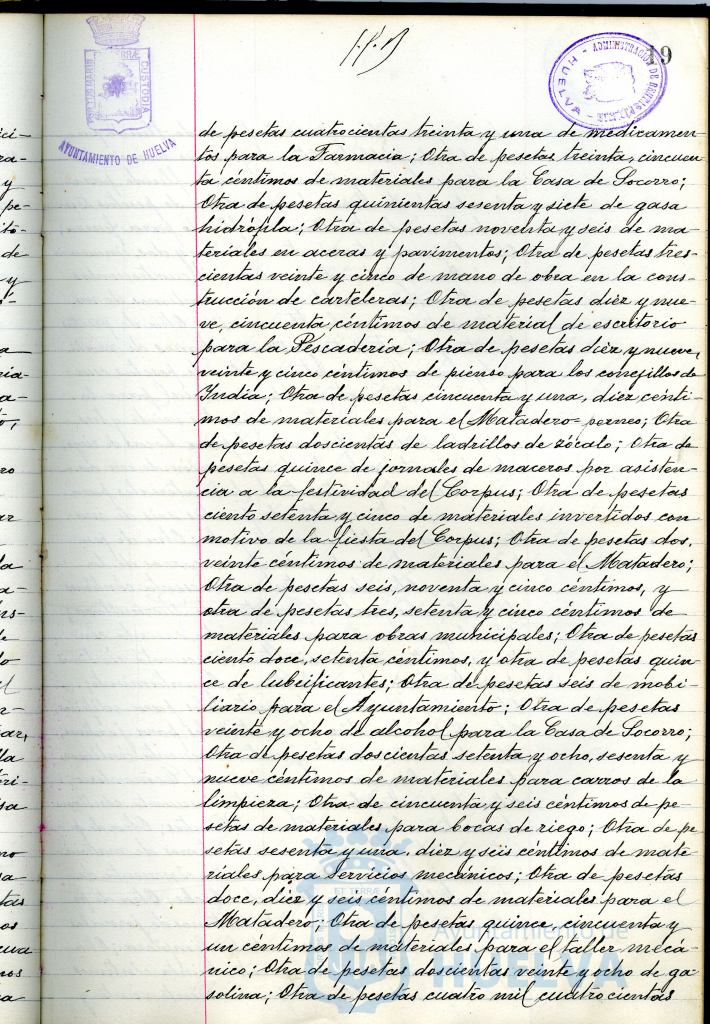 19
ADMINISTRACIÓN DE RENTAS
HUELVA
PORTUS MARIS ET TERRÆ CUSTODIA
AYUNTAMIENTO DE HUELVA
de pesetas cuatrocientas treinta y una de medicamen-
tos para la Farmacia; Otra de pesetas treinta, cincuen-
ta céntimos de materiales para la Casa de Socorro;
Otra de pesetas quinientas sesenta y siete de gasa
hidrófila; Otra de pesetas noventa y seis de ma-
teriales en aceras y pavimentos; Otra de pesetas tres-
cientas veinte y cinco de mano de obra en la cons-
trucción de carteleras; Otra de pesetas diez y nue-
ve, cincuenta céntimos de material de escritorio
para la Pescadería; Otra de pesetas diez y nueve,
veinte y cinco céntimos de pienso para los conejillos de
India; Otra de pesetas cincuenta y una, diez cénti-
mos de materiales para el Matadero=perneo; Otra
de pesetas doscientas de ladrillos de zócalo; Otra de
pesetas quince de jornales de maceros por asisten-
cia a la festividad del Corpus; Otra de pesetas
ciento setenta y cinco de materiales invertidos con
motivo de la fiesta del Corpus; Otra de pesetas dos,
veinte céntimos de materiales para el Matadero;
Otra de pesetas seis, noventa y cinco céntimos, y
otra de pesetas tres, setenta y cinco céntimos de
materiales para obras municipales; Otra de pesetas
ciento doce, setenta céntimos, y otra de pesetas quin-
ce de lubrificantes; Otra de pesetas seis de mobi-
liario para el Ayuntamiento; Otra de pesetas
veinte y ocho de alcohol para la Casa de Socorro;
Otra de pesetas doscientas setenta y ocho, sesenta y
nueve céntimos de materiales para carros de la
limpieza; Otra de cincuenta y seis céntimos de pe-
setas de materiales para bocas de riego; Otra de pe-
setas sesenta y una, diez y seis céntimos de mate-
riales para servicios mecánicos; Otra de pesetas
doce, diez y seis céntimos de materiales para el
Matadero; Otra de pesetas quince, cincuenta y
un céntimos de materiales para el taller mecá-
nico; Otra de pesetas doscientas veinte y ocho de ga-
solina; Otra de pesetas cuatro mil cuatrocientas
ET TERRÆ
Ayuntamiento de
HUELVA